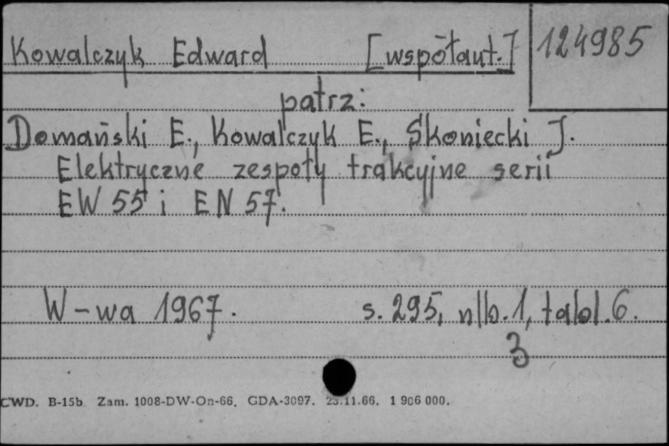 Kowalczyk Edward [współaut.] 124985
patrz:
Domański E., Kowalczyk E., Skoniecki J.
Elektryczne zespoły trakcyjne serii
EW 55 i EN 57.
W-wa 1967. s. 295, nlb. 1, tabl. 6.
3
CWD. B-15b. Zam. 1008-DW-On-66. GDA-3097. 23.11.66. 1 906 000.